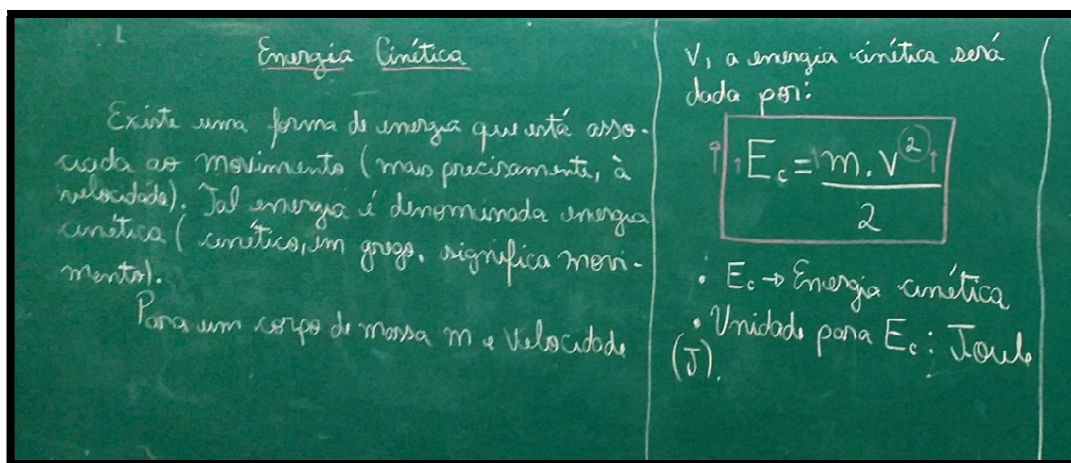 Energia Cinética
Existe uma forma de energia que está asso-
ciada ao movimento (mais precisamente, à
velocidade). Tal energia é denominada energia
cinética (cinético, em grego, significa movi-
mento).
Para um corpo de massa m e velocidade
V, a energia cinética será
dada por:
↑ ↑ E꜀ = ↑m. V² ↑
2
• Ec → Energia cinética
• Unidade para Ec: Joule
(J).